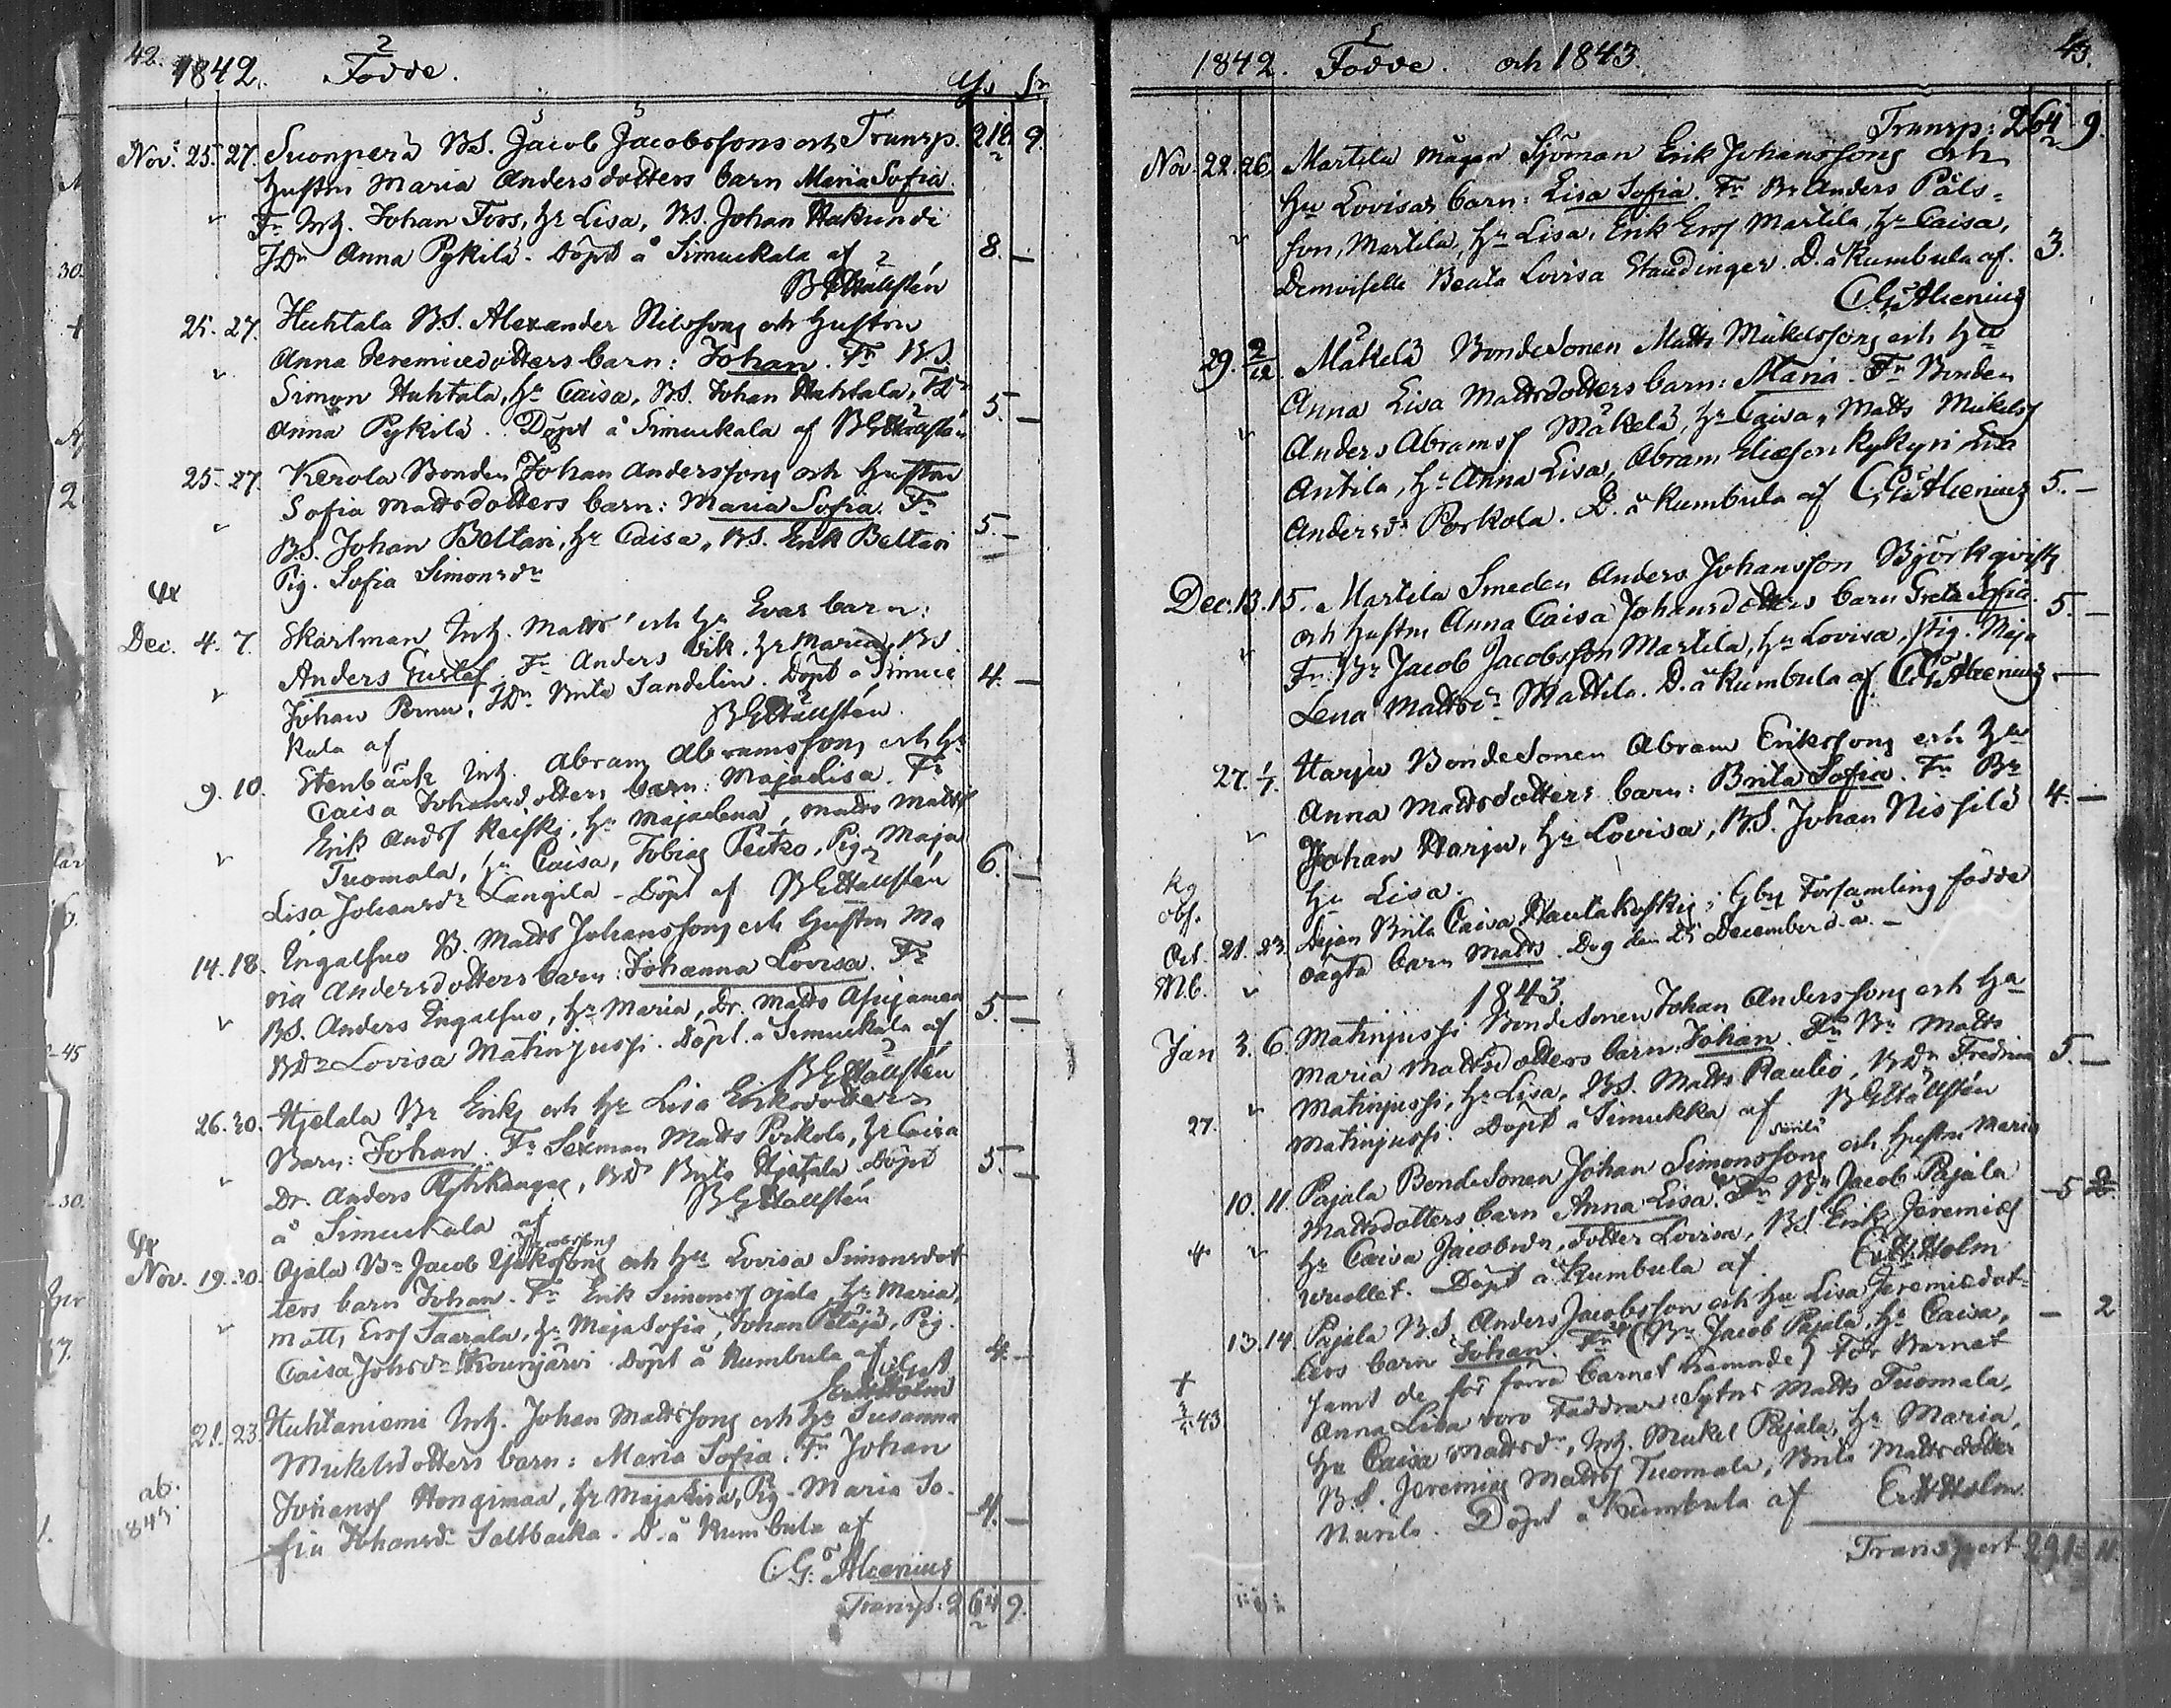 42.
1842. Födde.
Nov: 25. 27. Suonperä BS. Jacob Jacobssons och Transp. 212. 9.
hustru Maria Andersdotters barn Maria Sofia.
Fr Inh. Johan Fors, hr Lisa, BS. Johan Hakundi
JDn Anna Pykilä. Döpt å Simuckala af 8. —
BGHällstén
25. 27. Huhtala BS. Alexander Nilssons och hustru
Anna Jeremiædotters barn: Johan. Fr BS.
Simon Huhtala, hr Caisa, BS. Johan Huhtala,
Anna Pykilä. Döpt å Simuckala af BGHällstén 5. —
25. 27. Kerola Bonden Johan Anderssons och Hustru
Sofia Mattsdotters barn: Maria Sofia. Fr
BS. Johan Beltari, hr Caisa, BS. Erik Beltari 5. —
Pig. Sofia Simonsdr
Dec. 4. 7. Skärlman Inh. Matts och hr Evas barn:
Anders Gustaf. Fr Anders Vik. hr Maria, BS
Johan Pernu, JDn Brita Sandelin. Döpt å Simuc 4. —
kala af BGHällstén.
9. 10. Stenbäck Inh. Abram Abramssons och hr
Caisa Johansdotters barn: Maja Lisa. Fr
Erik Andss Reiski, hr Majalena, Matts Mattss
Tuomala, hr Caisa, Tobias Peitko, Pig. Maja
Lisa Johansdr Langila - Döpt af BGHällstén 6. —
14. 18. Ingalsuo B. Matts Johanssons och hustru Ma
ria Andersdotters barn: Johanna Lovisa. Fr
BS. Anders Ingalsuo, hr Maria, Dr. Matts 5. —
BDr Lovisa Matinjussi. Döpt å Simuckala af
BGHällstén
26. 30. Hjelala Br Eriks och hr Lisa Eriksdotters
Barn: Johan. Fr Sexman Matts Porkola, hr Caisa
Dr. Anders BD Brita Hjetala. Döpt 5. —
å Simuckala af BGHällstén
Nov. 19. 20. Ojala Br Jacob och hru Lovisa Simonsdot
ters barn Johan. Fr Erik Simonss Ojala, hr Maria,
Matts Erss Saarala, hr Maja Sofia, Johan Petäjä, Pig.
Caisa Johsdr Kounjärvi. Döpt å Kumbula af 4. —
21. 23. Huhtaniemi Inh. Johan Mattssons och hr Susanna
Mickelsdotters barn: Maria Sofia. Fr Johan
Johanss Hongimaa, hr Maja Lisa, Pig. Maria So-
fia Johansdr Saltbacka. D. å Kumbula af 4. —
ab. 1845
C.G: Alcenius
Transp: 264 9.
43.
1842. Födde. och 1843.
Transp: 264 9.
Nov. 22. 26. Martila mågen Sjöman Erik Johanssons och
hu Lovisas barn: Lisa Sofia. Fr Br Anders Påls-
son, Martila, hr Lisa, Erik Erss Martila, hr Caisa,
Demoiselle Beata Lovisa Staudinger. D. å Kumbula af. 3.
C.G: Alcenius
29. 2/12. Mäkelä BondeSonen Matts Mickelssons och hu
Anna Lisa Mattsdotters barn: Maria. Fr Bonden
Anders Abramss Mäkelä, hr Caisa, Matts Mickelss
Antila, hr Anna Lisa, Abram Eliasson Kykyri Lisa
Andersdr Porkola. D. å Kumbula af C.G: Alcenius 5. —
Dec. 13. 15. Martila Smeden Anders Johansson Björkqvists
och hustru Anna Caisa Johansdotters barn Greta Sofia. 5. —
Fr Br Jacob Jacobsson Martila, hr Lovisa, Pig. Maja
Lena Mattsdr Mattila. D. å Kumbula af C.G: Alcenius
27. 1/1. Harju BondeSonen Abram Erikssons och hu
Anna Mattsdotters barn: Brita Sofia. Fr Br
Johan Harju, hr Lovisa, BS. Johan Nissilä 4. —
hr Lisa.
Oct. 21. 23. Brita Caisa i Gby Församling födde
oägta barn Matts. Dog den 25 December d. å. —
1843.
Jan 3. 6. Matinjussi BondeSonen Johan Anderssons och hu
Maria Mattsdotters barn: Johan. Fr Br Matts
Matinjussi, hr Lisa, BS. Matts Raulio, BDr Fredrica 5. —
27. Matinjussi. Döpt å Simukka af BGHällstén
10. 11. Pajala BondeSonen Johan Simonssons och Hustru Maria
Mattsdotters barn Anna Lisa. Fr Br Jacob Pajala —5
hr Caisa Jacobsdr, dotter Lovisa, BS. Erik Jeremiæs
Wuollet. Döpt å Kumbula af Holm
13. 14. Pajala BS. Anders Jacobsson och hu Lisa Jeremiædot-
ters barn Johan. Fr (Br Jacob Pajala, hr Caisa, — 2
samt de för förra barnet nämnde) För Barnet
Anna Lisa voro Faddrar: Sytnr Matts Tuomala,
hu Caisa Mattsdr, Inh. Mickel Pajala, hr Maria,
BS. Jeremias Mattss Tuomala, Brita Mattsdotter
Nurila. Döpt å Kumbula af Holm
Transport 291 11.